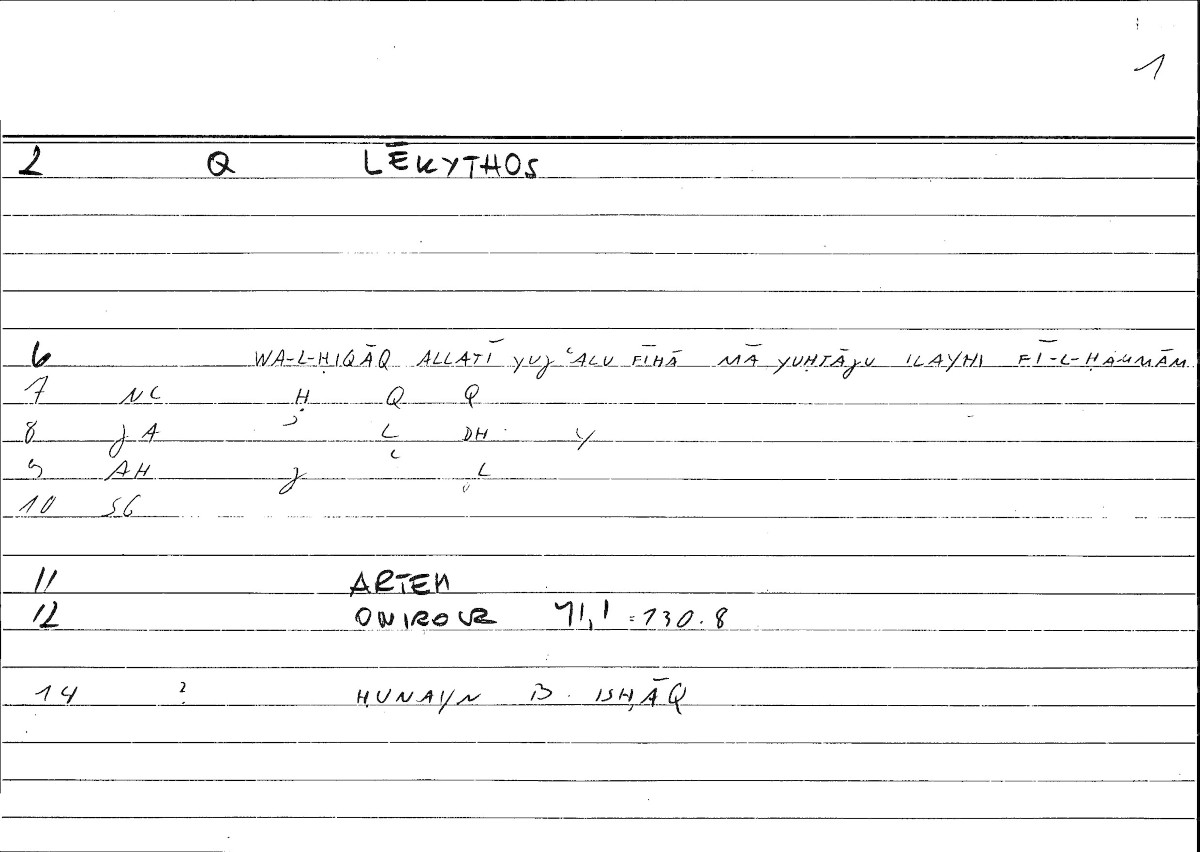 1
2 Q LĒKYTHOS
6 WA-L-ḤIQĀQ ALLATĪ YUJʿALU FĪHĀ MĀ YUḤTĀJU ILAYHI FĪ-L-ḤAMMĀM
7 NC Ḥ Q Q
8 JA L DH Y
9 AH J L
10 SG
11 ARTEM
12 ONIROCR 71,1 = 130.8
14 ? ḤUNAYN B. ISḤĀQ